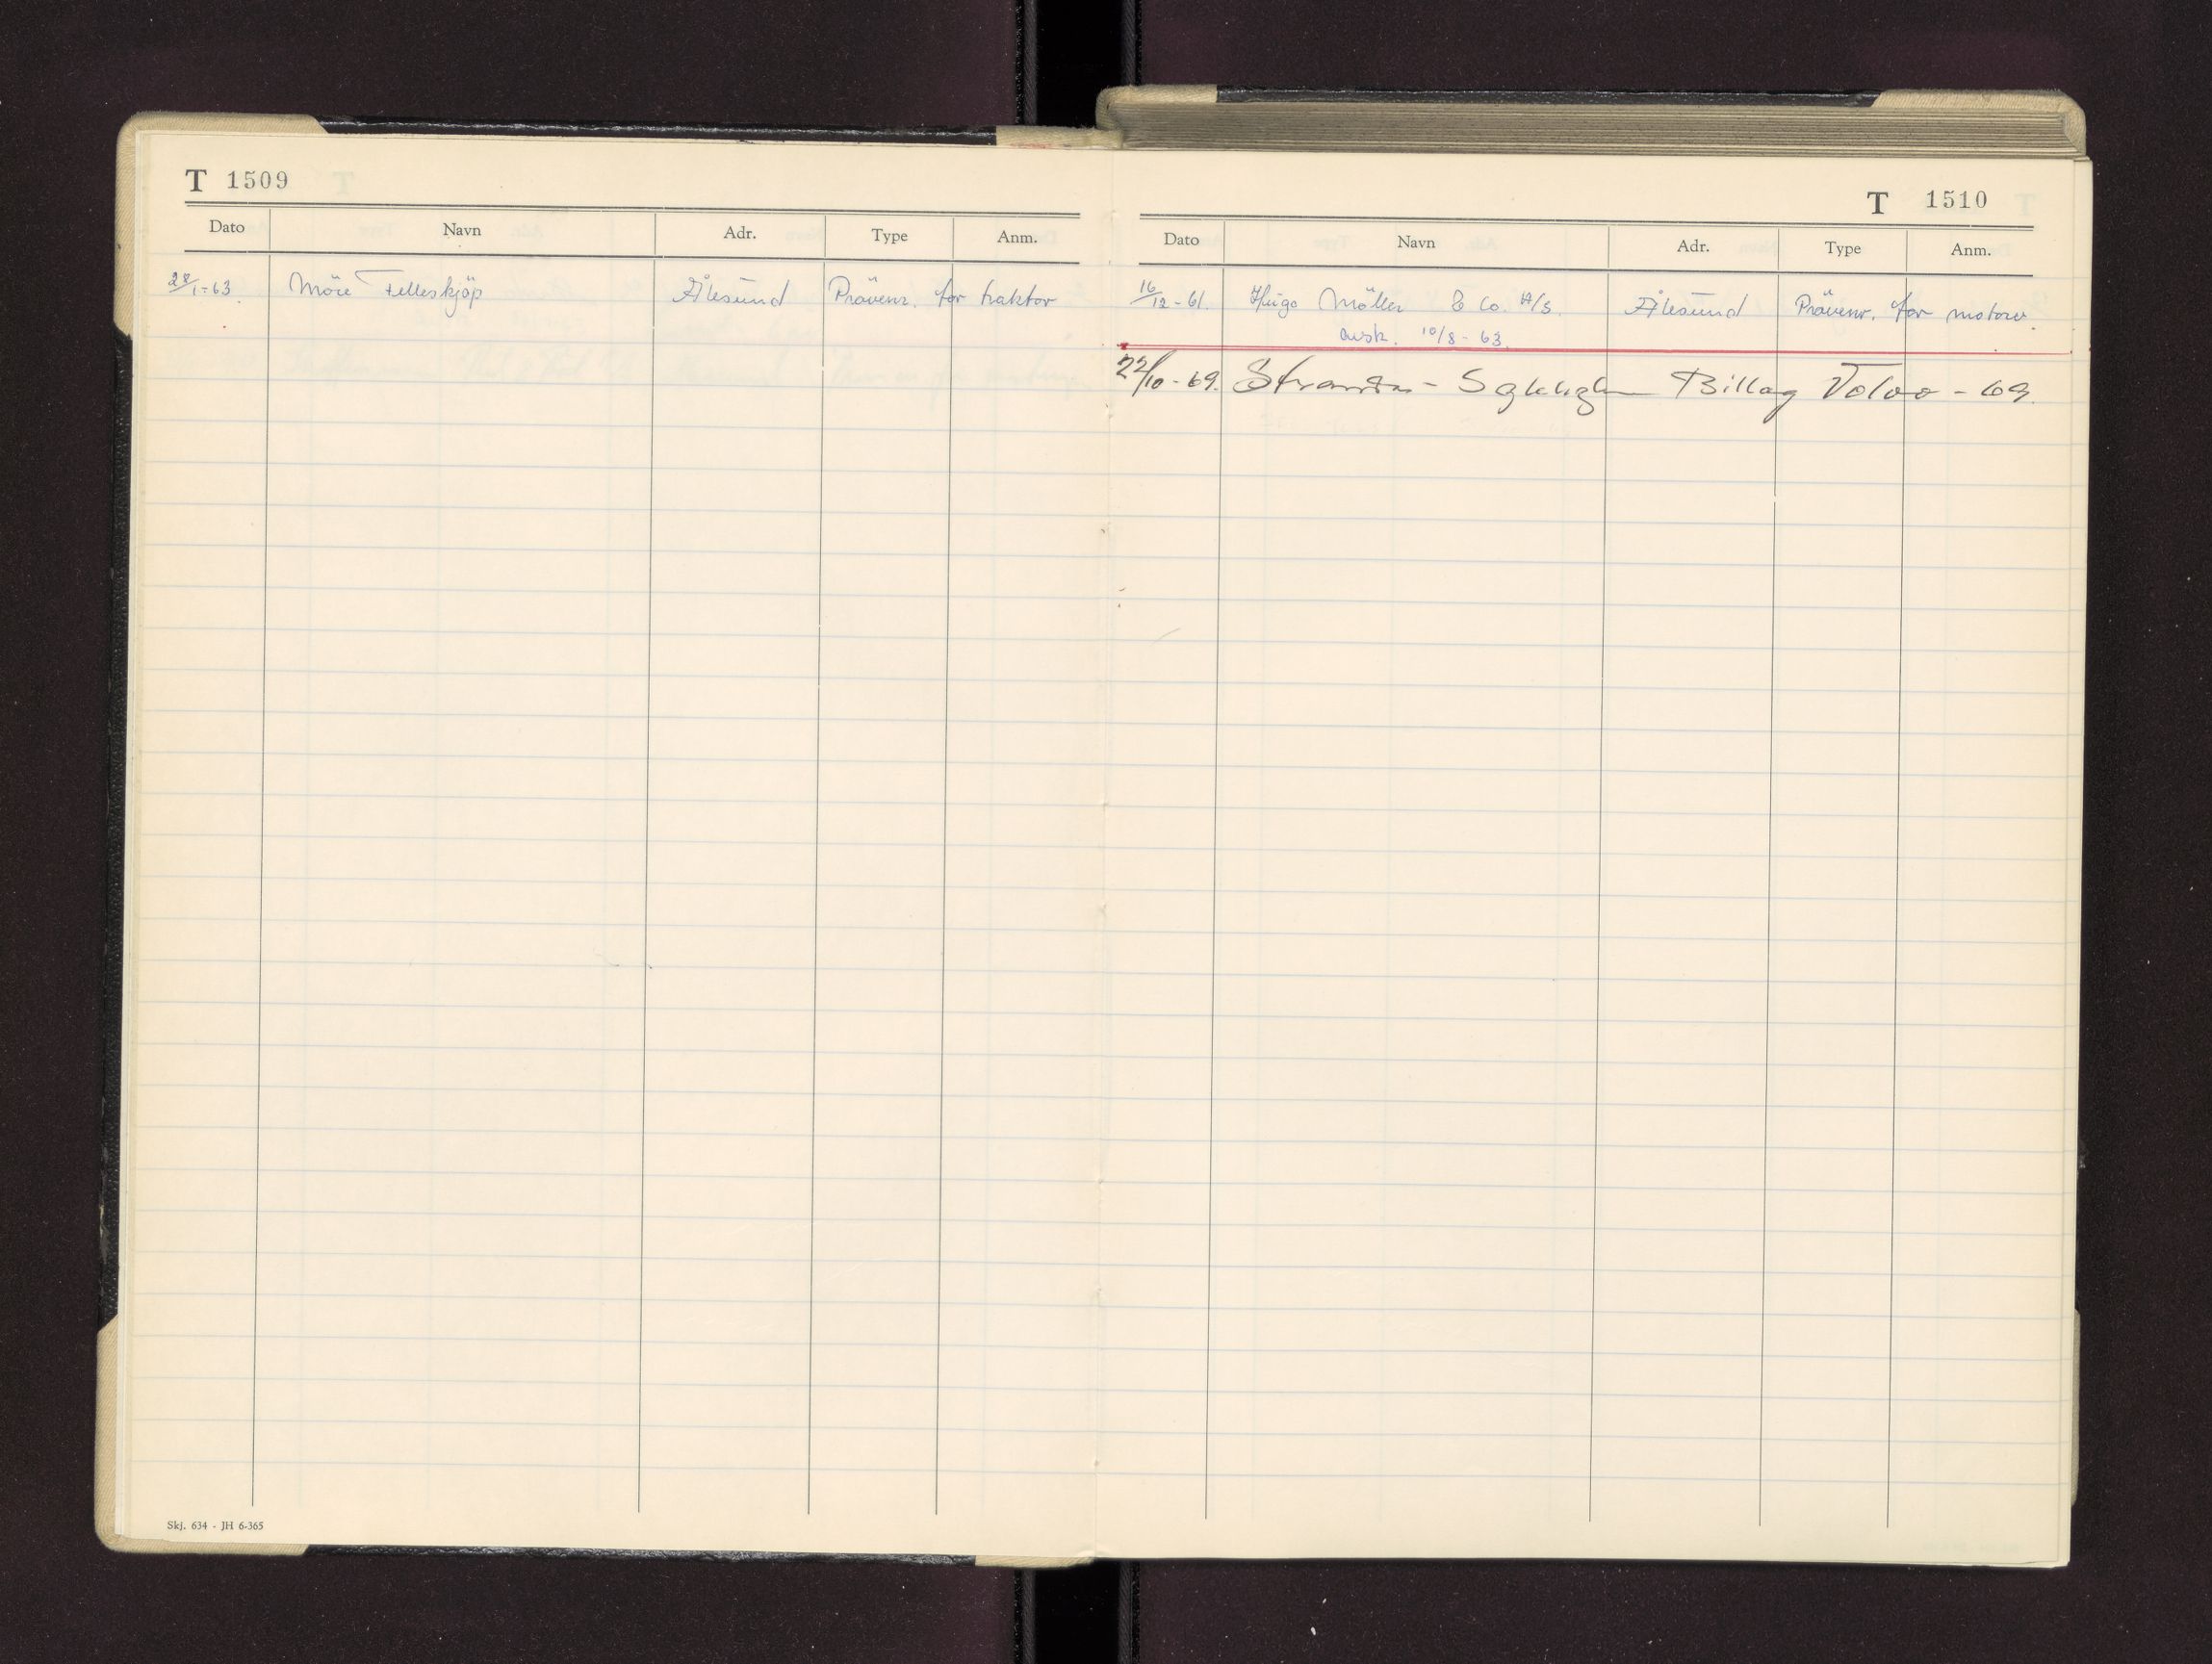 T 1509
Dato Navn Adr. Type Anm.
28/1-63 Möre Felleskjöp Ålesund Prövenr. for traktor
Skj. 634 - JH 6-365
T 1510
Dato Navn Adr. Type Anm.
16/12-61. Hugo Möller & Co. A/S. Ålesund Prövenr. for motorv.
avsk. 10/8-63.
22/10-69. Stranda- Billag Volvo -69.